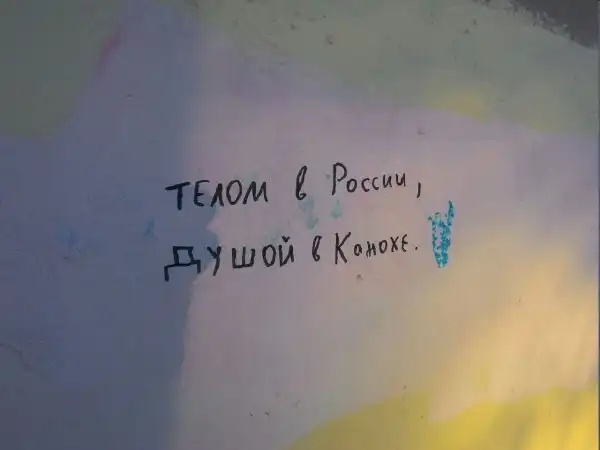 ТЕЛОМ в России,
ДУШОЙ в Конохе.